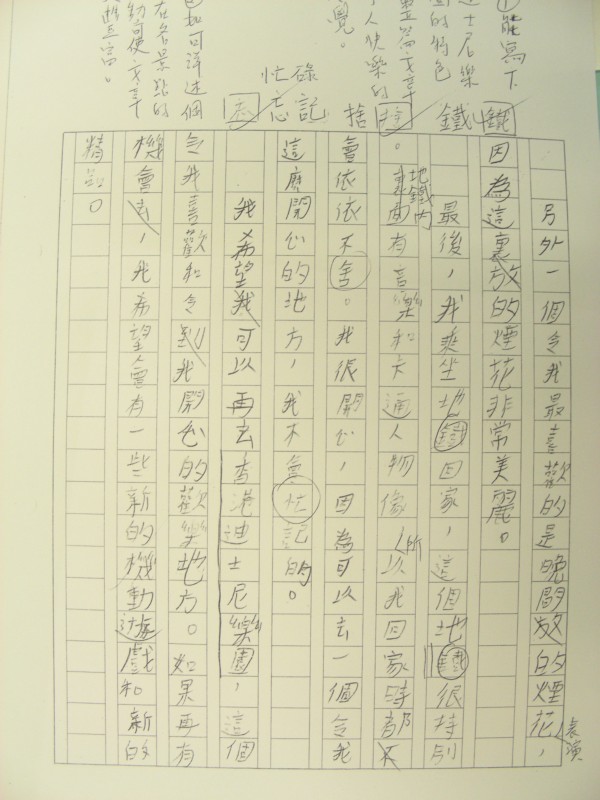 另外一個令我最喜歡的是晚間放的煙花,
表演
因為這裏放的煙花非常美麗。
最後,我乘坐地鐵回家,這個地鐵很特別
。裏面有音樂和卡通人物像,所以我回家時都不
地鐵內
會依依不舍。我很開心,因為可以去一個令我
這麼開心的地方,我不會忙記的。
我希望我可以再去香港迪士尼樂園,這個
令我喜歡和令到我開心的歡樂地方。如果再有
機會去,我希望會有一些新的機動遊戲和新的
精品。
鐵 鐵
捨
忙碌
忘記
①能寫下
士尼樂
的特色
人快樂的
覺。
可詳述個
在名景點的